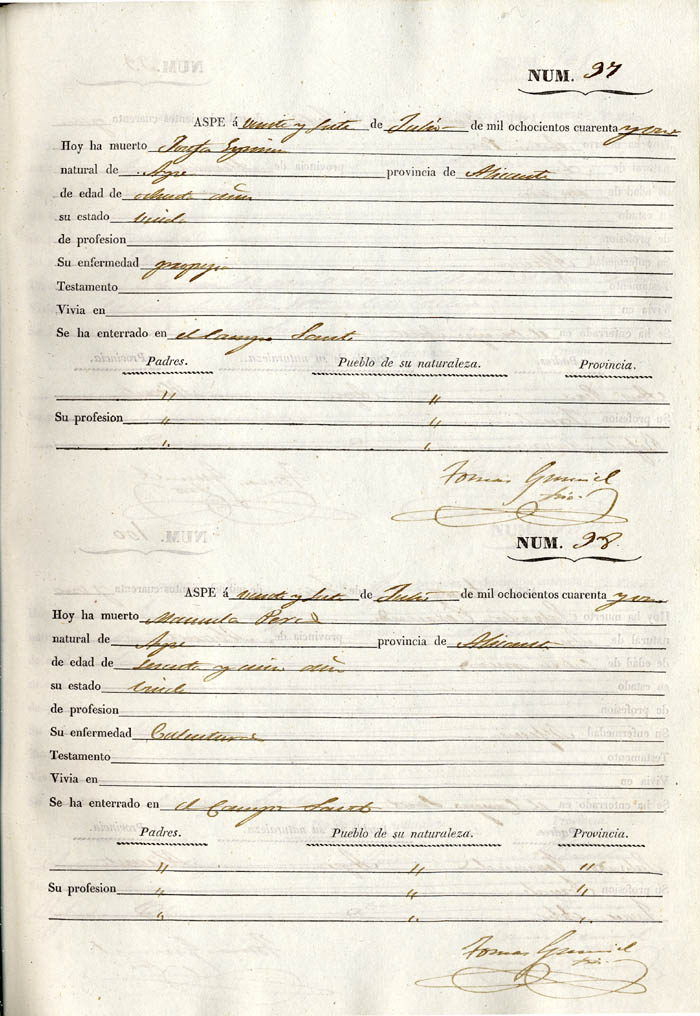 NUM. 97
ASPE á veinte y siete de Julio de mil ochocientos cuarenta y uno
Hoy ha muerto Josefa
natural de Aspe provincia de Alicante
de edad de ochenta años
su estado viuda
de profesion
Su enfermedad
Testamento
Vivia en
Se ha enterrado en el Campo Santo
Padres. Pueblo de su naturaleza. Provincia.
" "
Su profesion " "
" "
Tomas
NUM. 98
ASPE á veinte y siete de Julio de mil ochocientos cuarenta y uno
Hoy ha muerto Manuela Perez
natural de Aspe provincia de Alicante
de edad de sesenta y cinco años
su estado viuda
de profesion
Su enfermedad Calenturas
Testamento
Vivia en
Se ha enterrado en el Campo Santo
Padres. Pueblo de su naturaleza. Provincia.
" " "
Su profesion " " "
" " "
Tomas